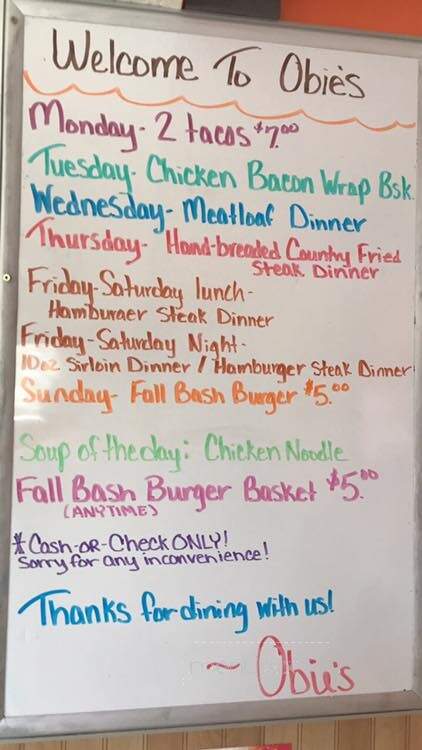 Welcome To Obie's
Monday- 2 tacos $7.00
Tuesday- Chicken Bacon Wrap Bsk.
Wednesday- Meatloaf Dinner
Thursday- Hand-breaded Country Fried
Steak Dinner
Friday-Saturday lunch-
Hamburger Steak Dinner
Friday-Saturday Night-
10oz Sirloin Dinner / Hamburger Steak Dinner
Sunday- Fall Bash Burger $5.00
Soup of the day: Chicken Noodle
Fall Bash Burger Basket $5.00
(ANYTIME)
* Cash-OR-Check ONLY!
Sorry for any inconvenience!
Thanks for dining with us!
~ Obie's